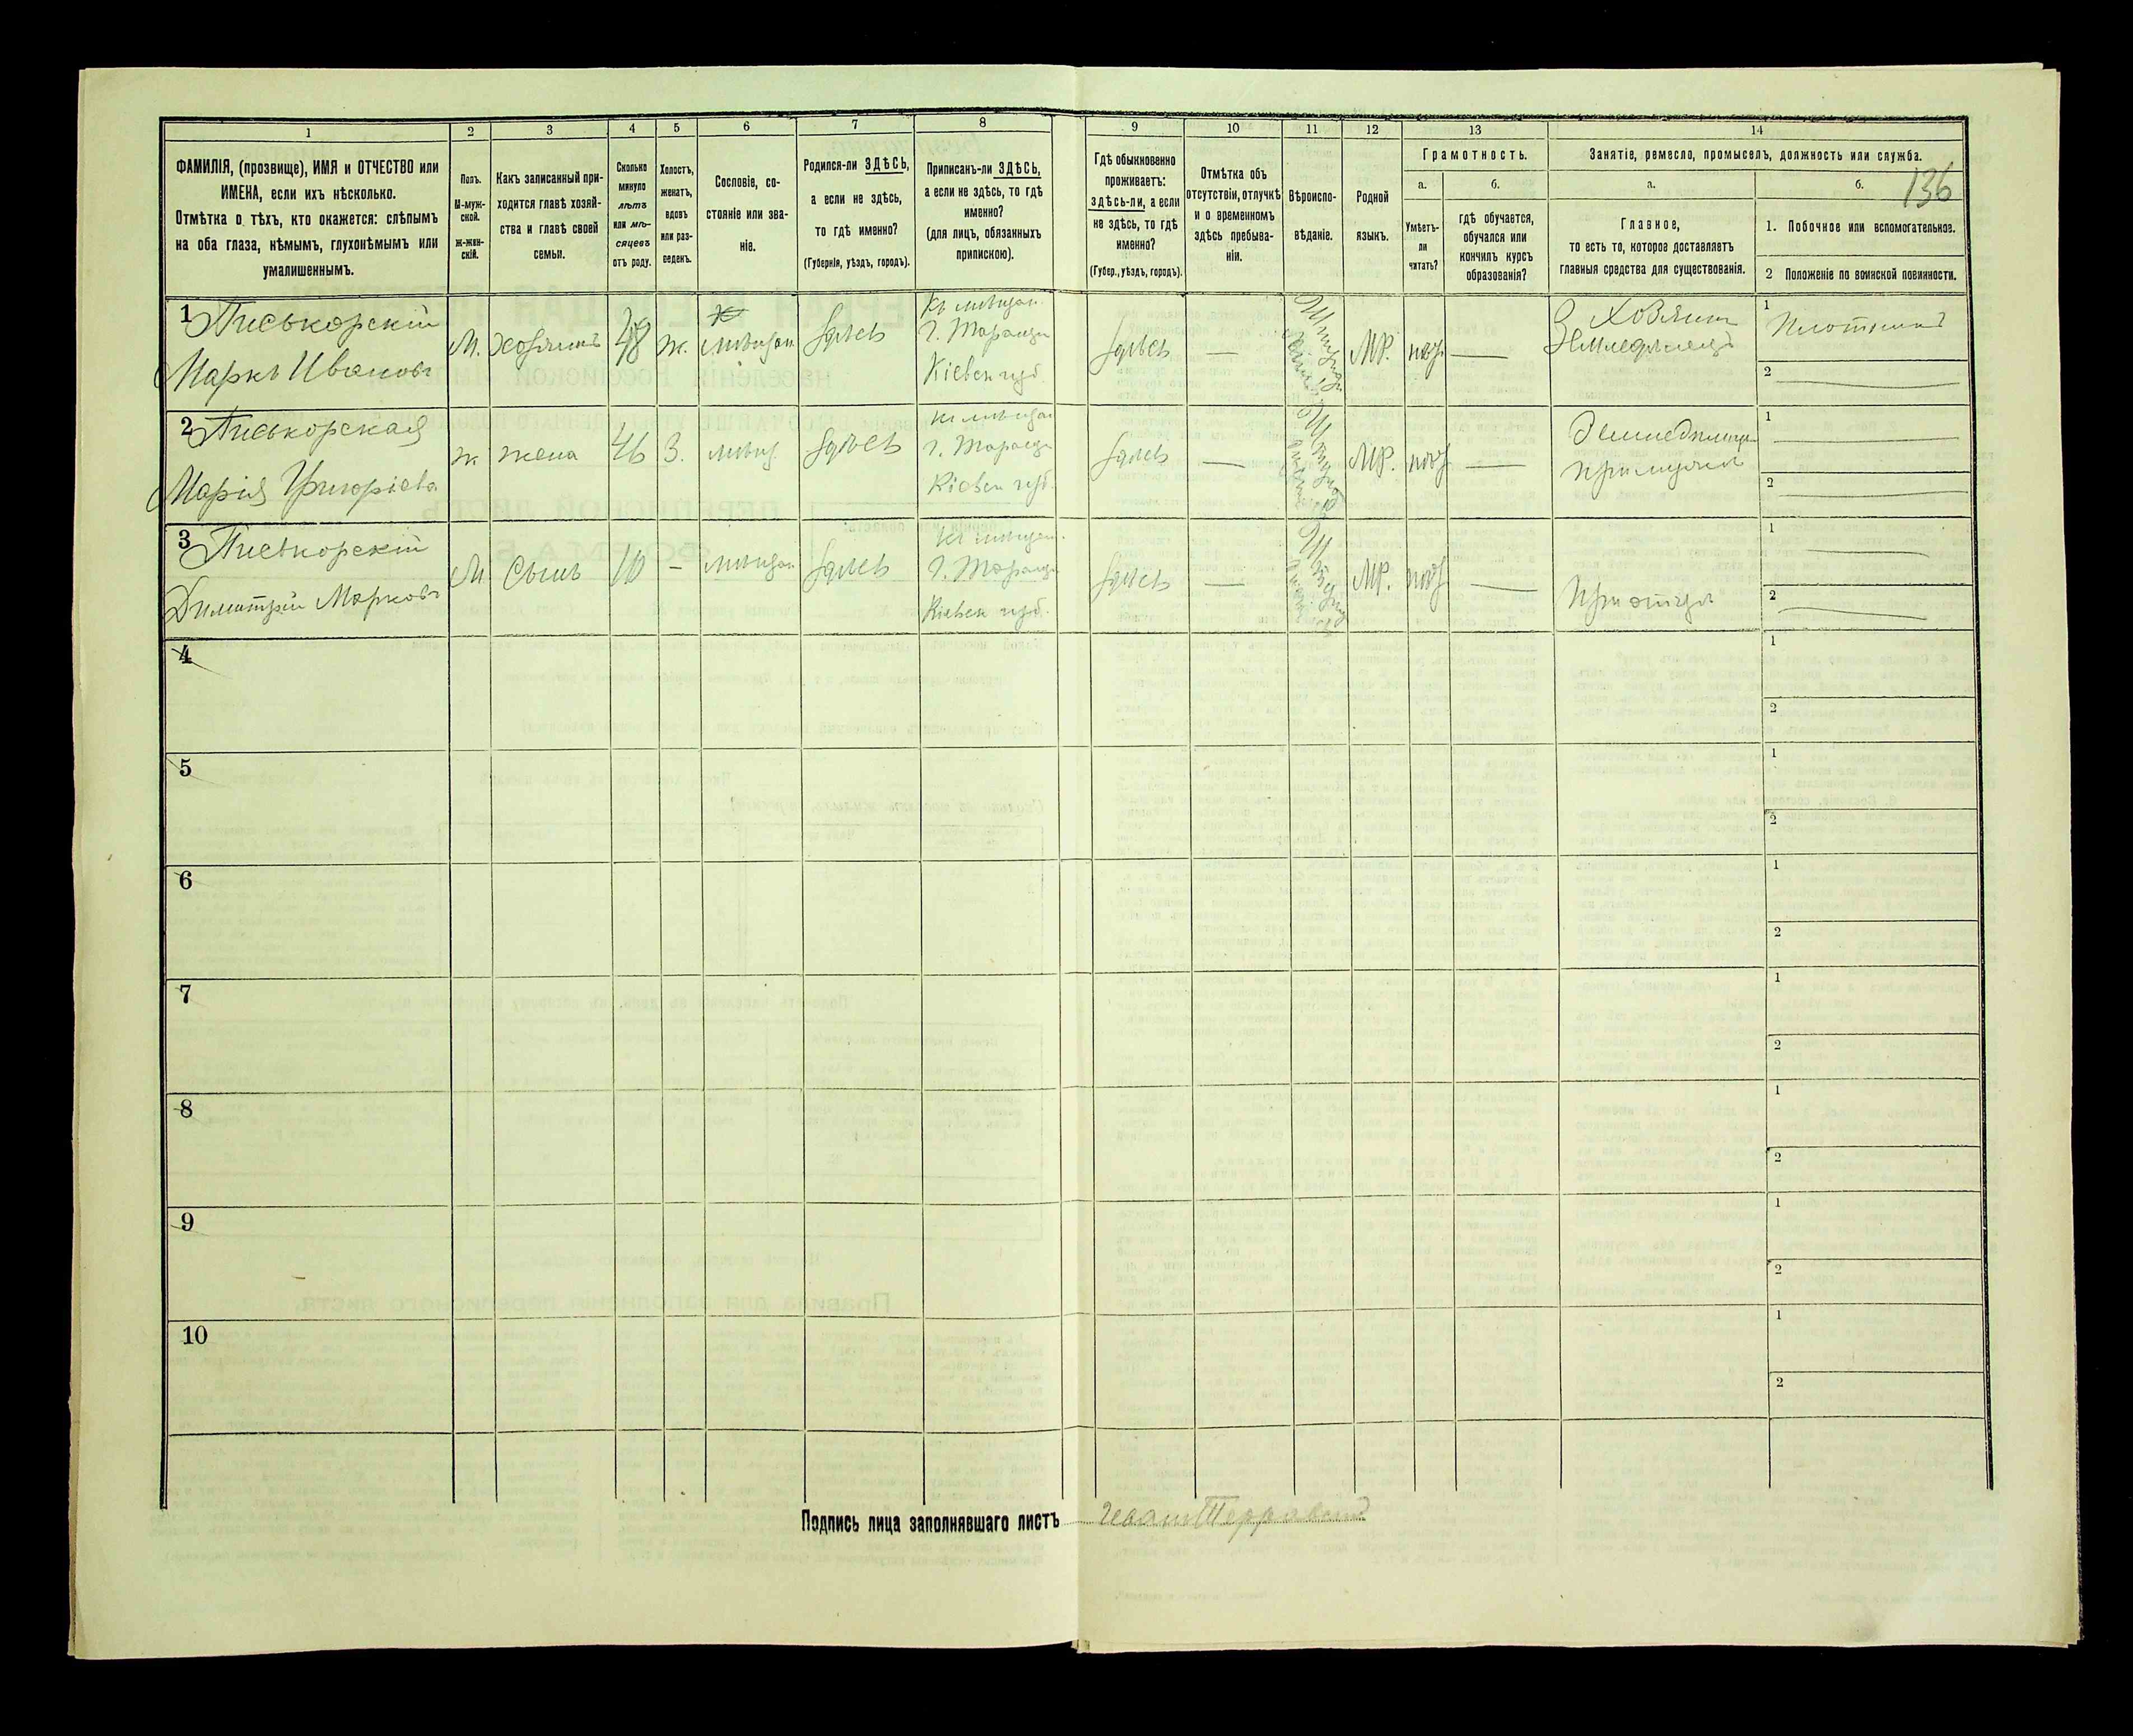 1
2
3
4
5
6
7
8
ФАМИЛІЯ, (прозвище), ИМЯ и ОТЧЕСТВО или
ИМЕНА, если ихъ нѣсколько.
Отмѣтка о тѣхъ, кто окажется: слѣпымъ
на оба глаза, нѣмымъ, глухонѣмымъ или
умалишеннымъ.
Полъ.
М-муж-
ской.
ж-жен-
скій.
Какъ записанный при-
ходится главѣ хозяй-
ства и главѣ своей
семьи.
Сколько
минуло
лѣтъ
или мѣ-
сяцевъ
отъ роду.
Холостъ,
женатъ,
вдовъ
или раз-
веденъ.
Сословіе, со-
стояніе или зва-
ніе.
Родился-ли ЗДѢСЬ,
а если не здѣсь,
то гдѣ именно?
(Губернія, уѣздъ, городъ).
Приписанъ-ли ЗДѢСЬ,
а если не здѣсь, то гдѣ
именно?
(для лицъ, обязанныхъ
припискою).
9
10
11
12
13
14
Гдѣ обыкновенно
проживаетъ:
здѣсь-ли, а если
не здѣсь, то гдѣ
именно?
(Губер., уѣздъ, городъ).
Отмѣтка объ
отсутствіи, отлучкѣ
и о временномъ
здѣсь пребыва-
ніи.
Вѣроиспо-
вѣданіе.
Родной
языкъ.
Грамотность.
а.
б.
Умѣетъ-
ли
читать?
гдѣ обучается,
обучался или
кончилъ курсъ
образованія?
Занятіе, ремесло, промыселъ, должность или служба.
а.
б.
136
Главное,
то есть то, которое доставляетъ
главныя средства для существованія.
1. Побочное или вспомогательное.
2 Положеніе по воинской повинности.
1 Писькорскій
Маркъ Ивановъ
М.
хозяинъ
48
ж.
мѣщан
здѣсь
Къ мѣщан.
Г. Таращи
Кіевск губ.
здѣсь
—
МР.
—
Хозяинъ
Земледѣлецъ
1 Плотникъ
2
2 Писькорская
Марія Григоріева
ж
жена
46
З.
мѣщ
здѣсь
къ мѣщан
г. Таращи
Кіевск губ.
здѣсь
—
МР.
—
при мужѣ
1
2
3 Писькорскій
Димитрій Марковъ
М
Сынъ
10
-
мѣщан
здѣсь
Къ мѣщан.
Г. Таращи
Кіевск губ.
здѣсь
—
МР.
—
При отцѣ
1
2
4
1
2
5
1
2
6
1
2
7
1
2
8
1
2
9
1
2
10
1
2
Подпись лица заполнявшаго листъ